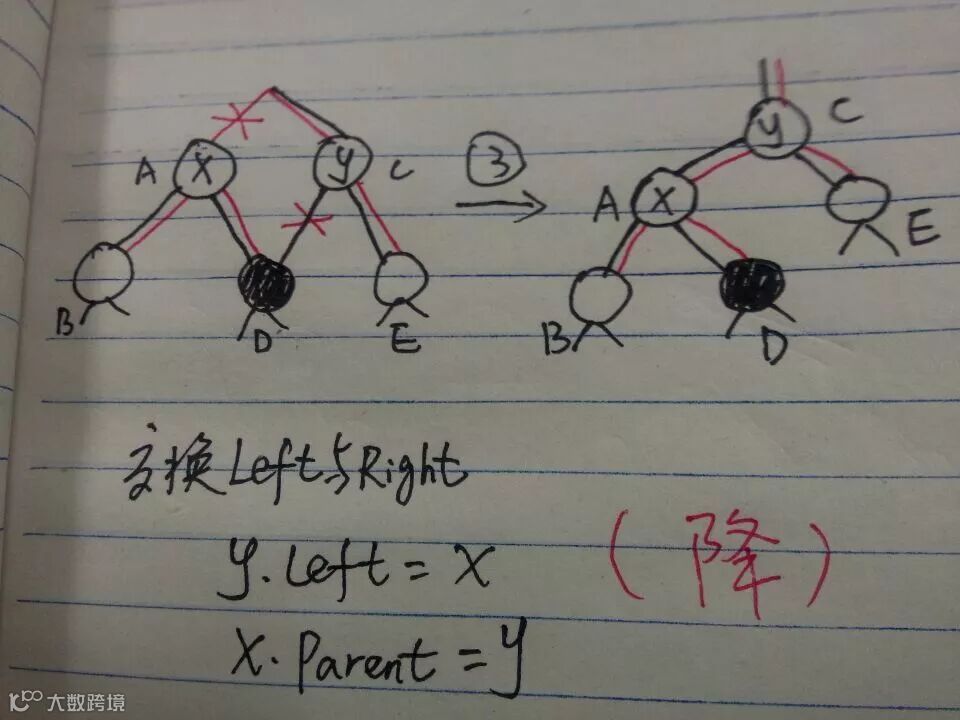 A X Y C ③ Y C
A X E
B D E B D
交换Left与Right
y.Left = X (降)
X.Parent = y
大数跨境